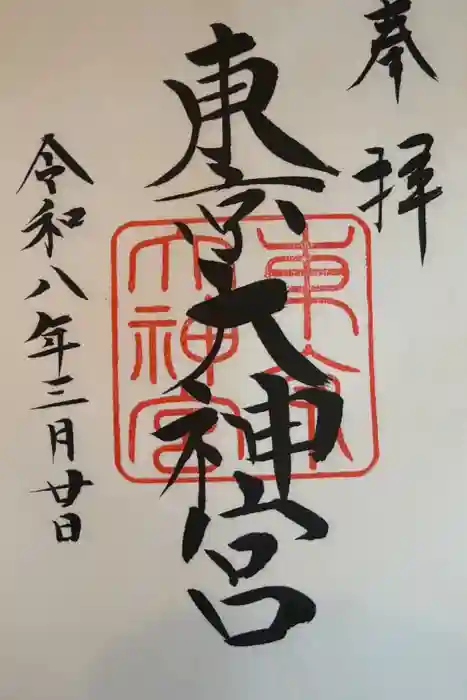 奉拝
東京大神宮
東京
大神宮
令和八年三月廿日